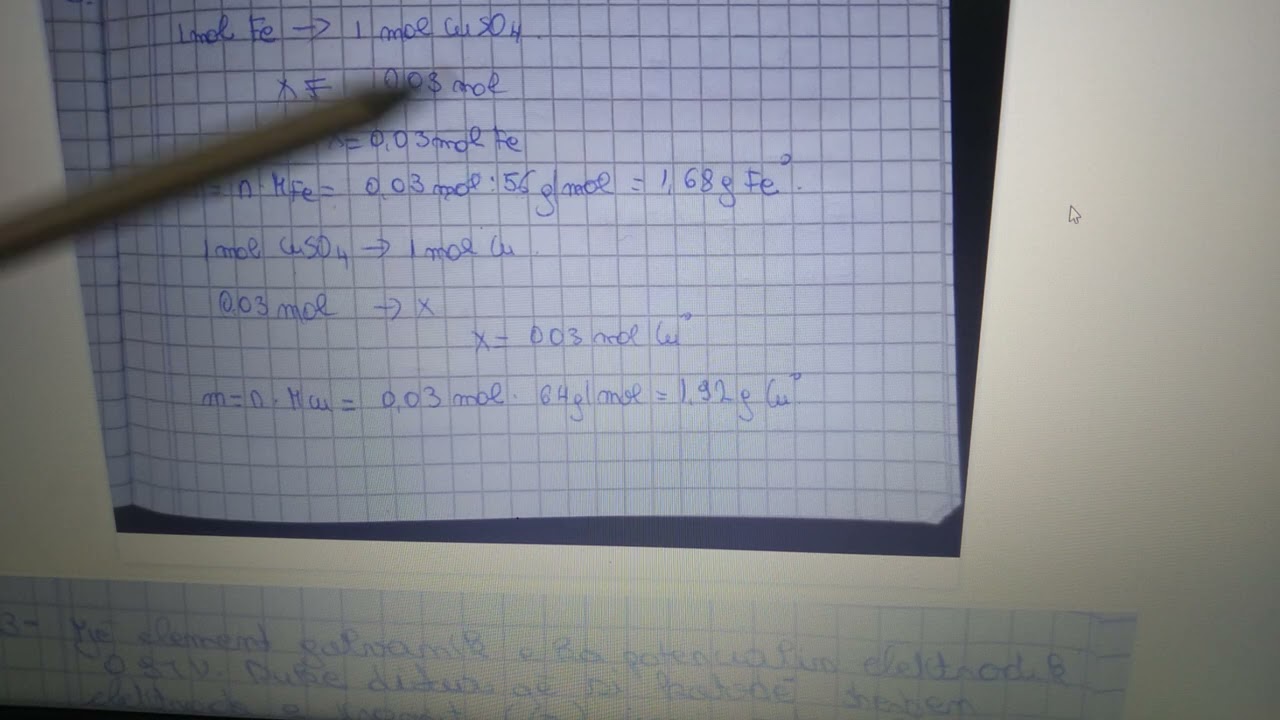 1 mol Fe → 1 mol CuSO4.
x = 0,03 mol
x = 0,03 mol Fe
= n · MFe = 0,03 mol · 56 g/mol = 1,68 g Fe°.
1 mol CuSO4 → 1 mol Cu.
0,03 mol → x
x = 003 mol Cu°
m = n · MCu = 0,03 mol · 64 g/mol = 1,92 g Cu°
3- Një element galvanik e ka potencialin elektrodik